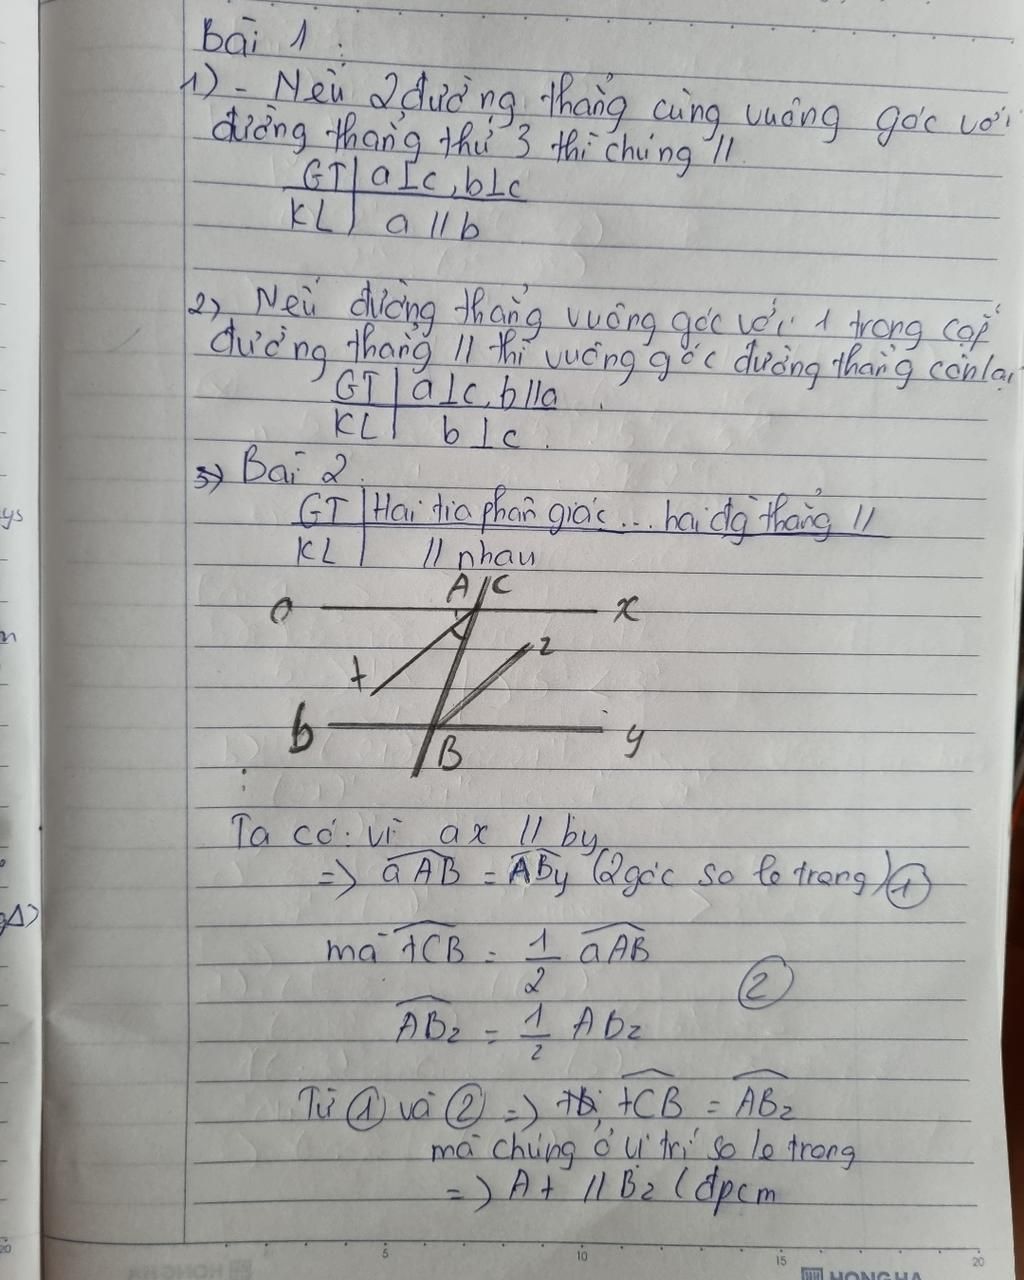 Bài 1:
1) - Nếu 2 đường thẳng cùng vuông góc với
đường thẳng thứ 3 thì chúng //
GT | a ⊥ c, b ⊥ c
KL | a // b
2) Nếu đường thẳng vuông góc với 1 trong cặp
đường thẳng // thì vuông góc đường thẳng còn lại
GT | a ⊥ c, b // a
KL | b ⊥ c.
3) Bài 2
GT | Hai tia phân giác ... hai đg thẳng //
KL | // nhau
A C
a x
z
t
b y
B
Ta có: vì ax // by
=> aAB = ABy (2 góc so le trong) (1)
mà tCB = 1/2 aAB
(2)
ABz = 1/2 Abz
Từ (1) và (2) => tCB = ABz
mà chúng ở vị trí so le trong
=> At // Bz (đpcm
ys
20
5 10 15 20
HONG HA